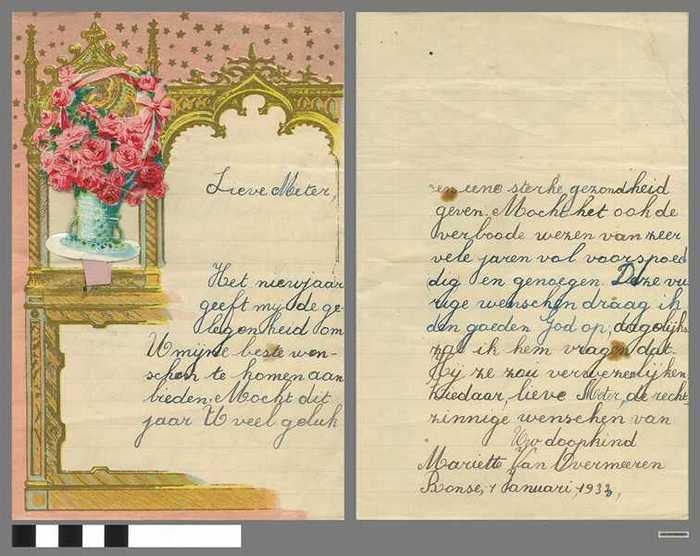 Lieve Meter,
Het nieuwjaar
geeft my de ge-
legenheid om
U mijne beste wen-
schen te komen aan
bieden. Mocht dit
jaar U veel geluk
en eene sterke gezondheid
geven. Mocht het ook de
verboode wezen van zeer
vele jaren vol voorspoed
dig en genoegen. Deze vu
rige wenschen draag ik
den goeden God op, dagelijks
zal ik hem vragen dat
Hij ze zou verwezenlijken
Ziedaar, lieve Meter, de recht
zinnige wenschen van
Uw doopkind
Mariette Van Overmeeren
Ronse, 1 Januari, 1933,